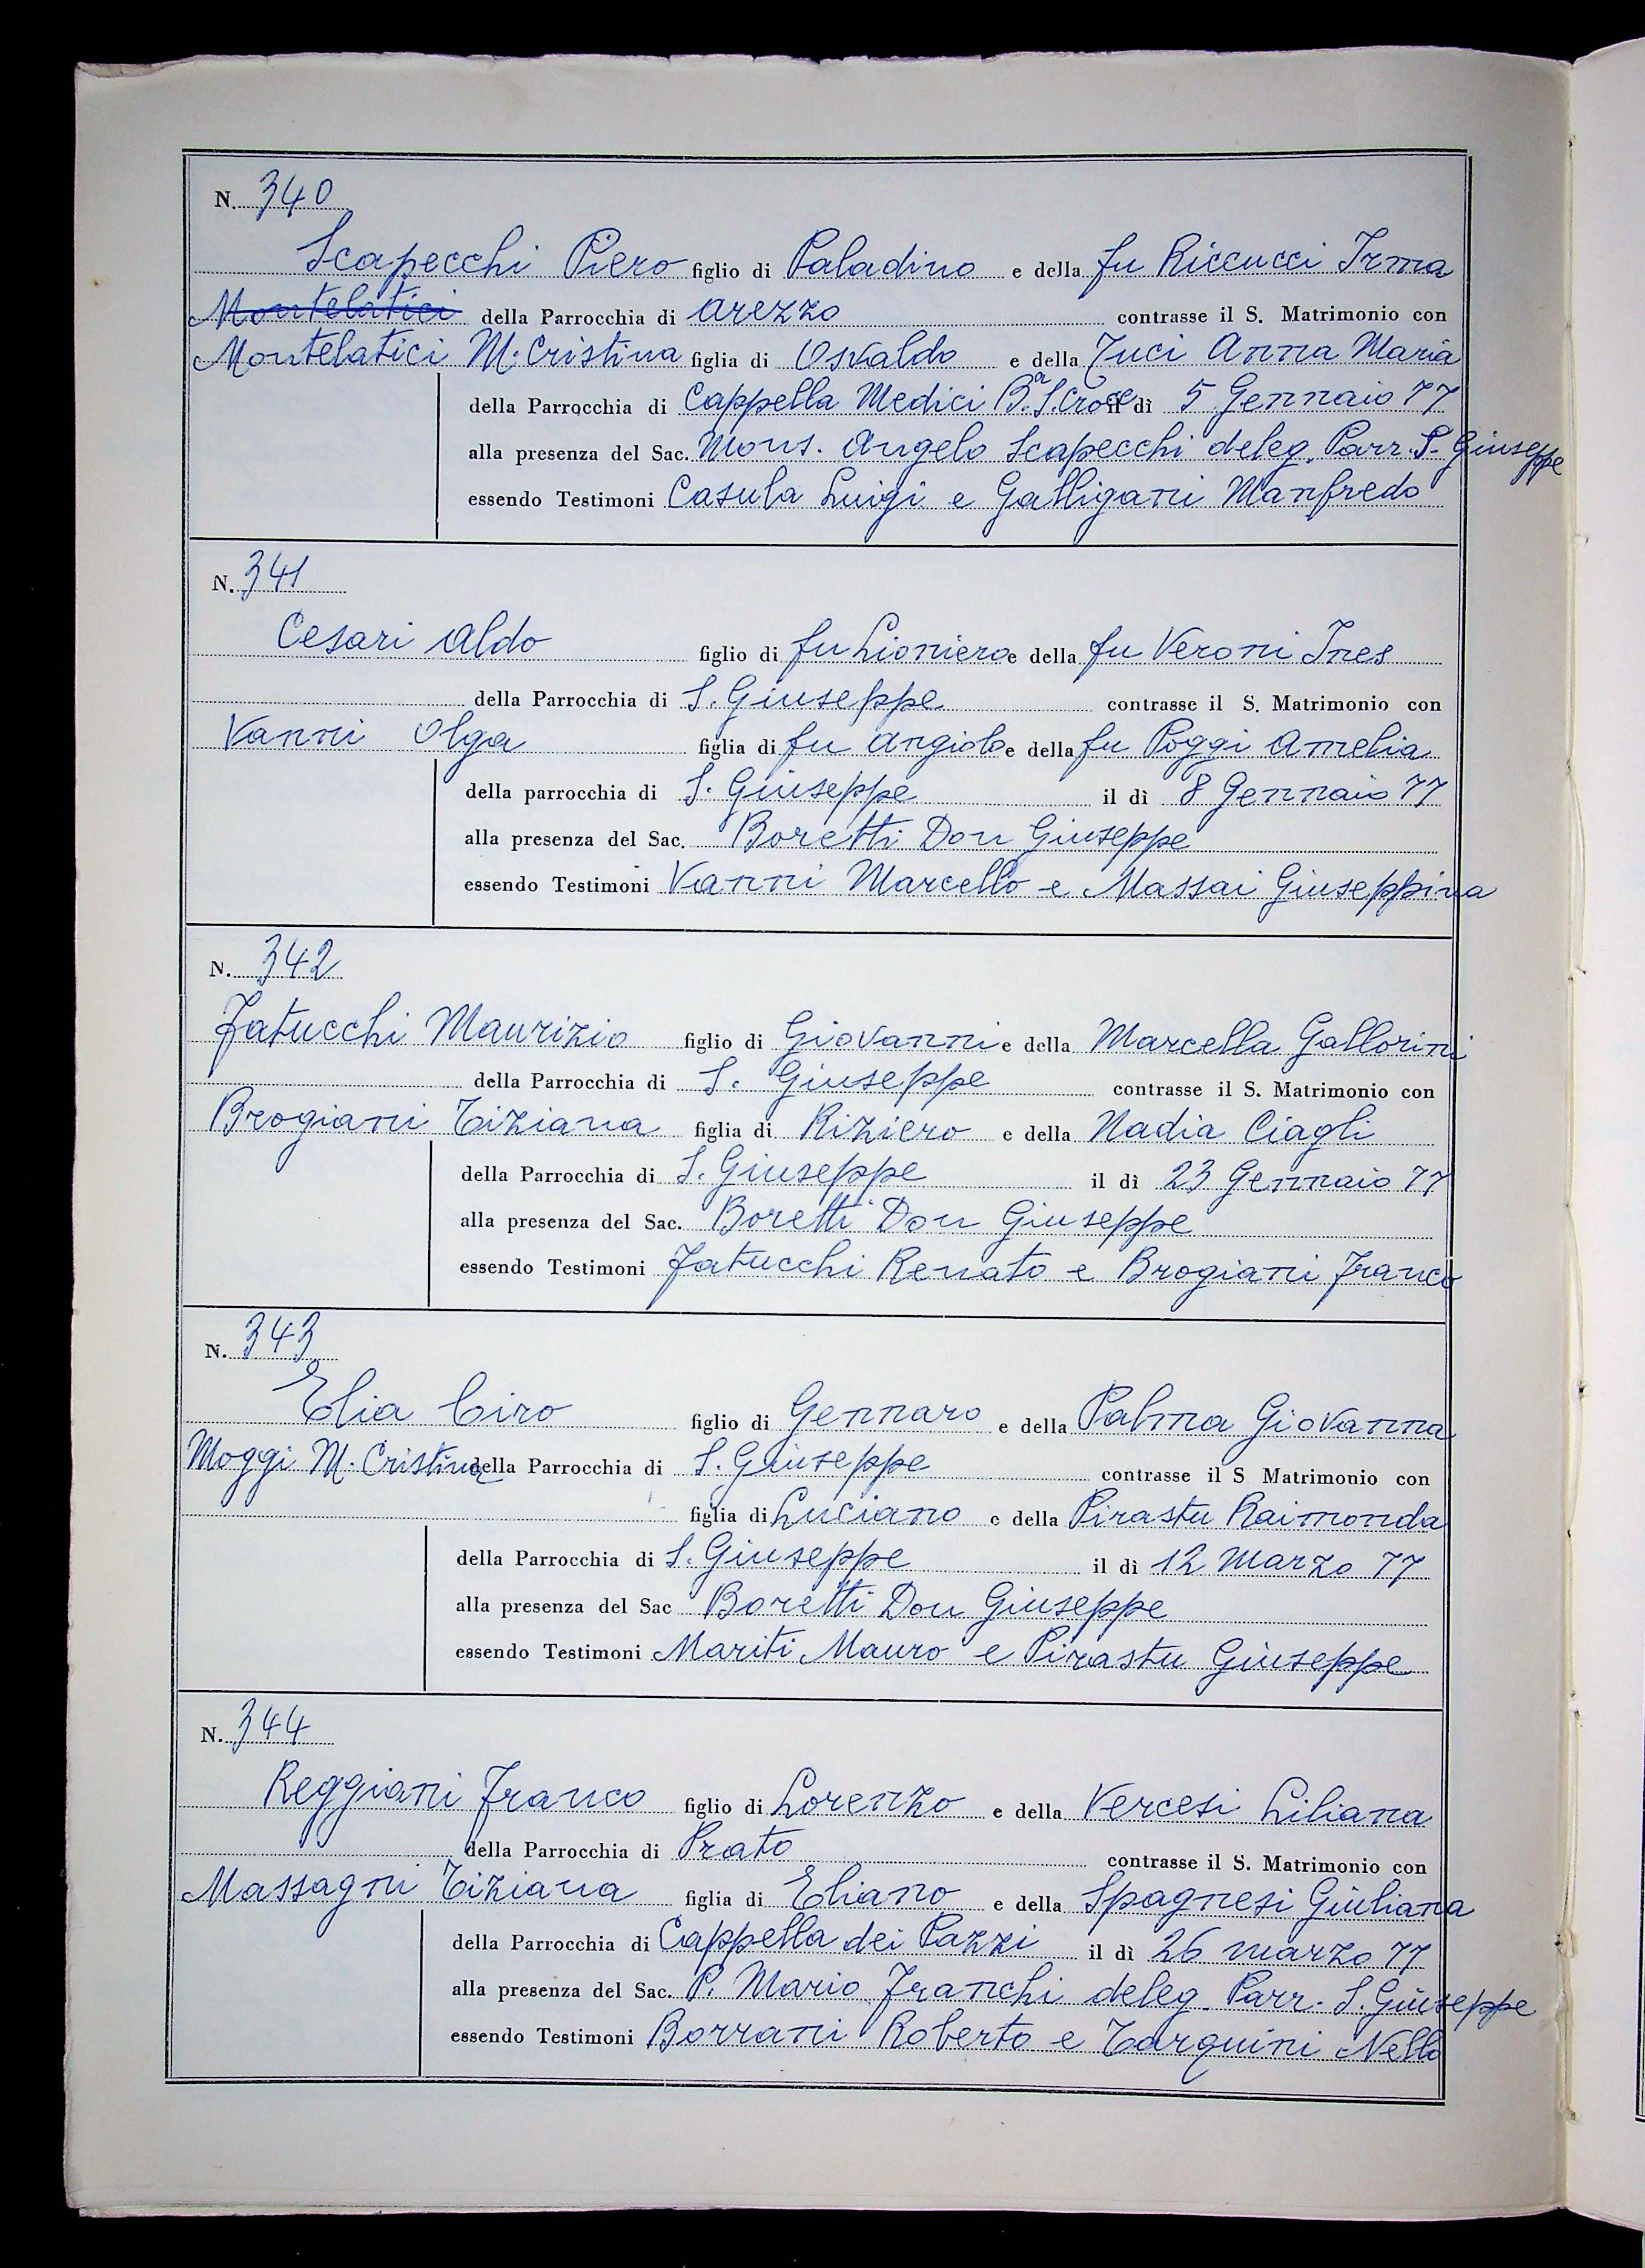 N. 340
Scapecchi Piero figlio di Paladino e della fu Riccucci Irma
Montelatici della Parrocchia di Arezzo contrasse il S. Matrimonio con
Montelatici M. Cristina figlia di Osvaldo e della Fuci Anna Maria
della Parrocchia di Cappella Medici B.a S. Croce il dì 5 Gennaio 77
alla presenza del Sac. Mons. Angelo Scapecchi deleg. Parr. S. Giuseppe
essendo Testimoni Casula Luigi e Galligani Manfredo
N. 341
Cesari Aldo figlio di fu Lioniero e della fu Veroni Ines
della Parrocchia di S. Giuseppe contrasse il S. Matrimonio con
Vanni Olga figlia di fu Angiolo e della fu Poggi Amelia
della parrocchia di S. Giuseppe il dì 8 Gennaio 77
alla presenza del Sac. Boretti Don Giuseppe
essendo Testimoni Vanni Marcello e Massai Giuseppina
N. 342
Fatucchi Maurizio figlio di Giovanni e della Marcella Gallorini
della Parrocchia di S. Giuseppe contrasse il S. Matrimonio con
Brogiani Tiziana figlia di Riziero e della Nadia Ciagli
della Parrocchia di S. Giuseppe il dì 23 Gennaio 77
alla presenza del Sac. Boretti Don Giuseppe
essendo Testimoni Fatucchi Renato e Brogiani Franco
N. 343
Elia Ciro figlio di Gennaro e della Palma Giovanna
Moggi M. Cristina della Parrocchia di S. Giuseppe contrasse il S Matrimonio con
figlia di Luciano e della Pirastu Raimonda
della Parrocchia di S. Giuseppe il dì 12 Marzo 77
alla presenza del Sac Boretti Don Giuseppe
essendo Testimoni Mariti Mauro e Pirastu Giuseppe
N. 344
Reggiani Franco figlio di Lorenzo e della Vercesi Liliana
della Parrocchia di Prato contrasse il S. Matrimonio con
Massagni Tiziana figlia di Eliano e della Spagnesi Giuliana
della Parrocchia di Cappella dei Pazzi il dì 26 marzo 77
alla presenza del Sac. P. Mario Franchi deleg. Parr. S. Giuseppe
essendo Testimoni Borrani Roberto e Tarquini Nello